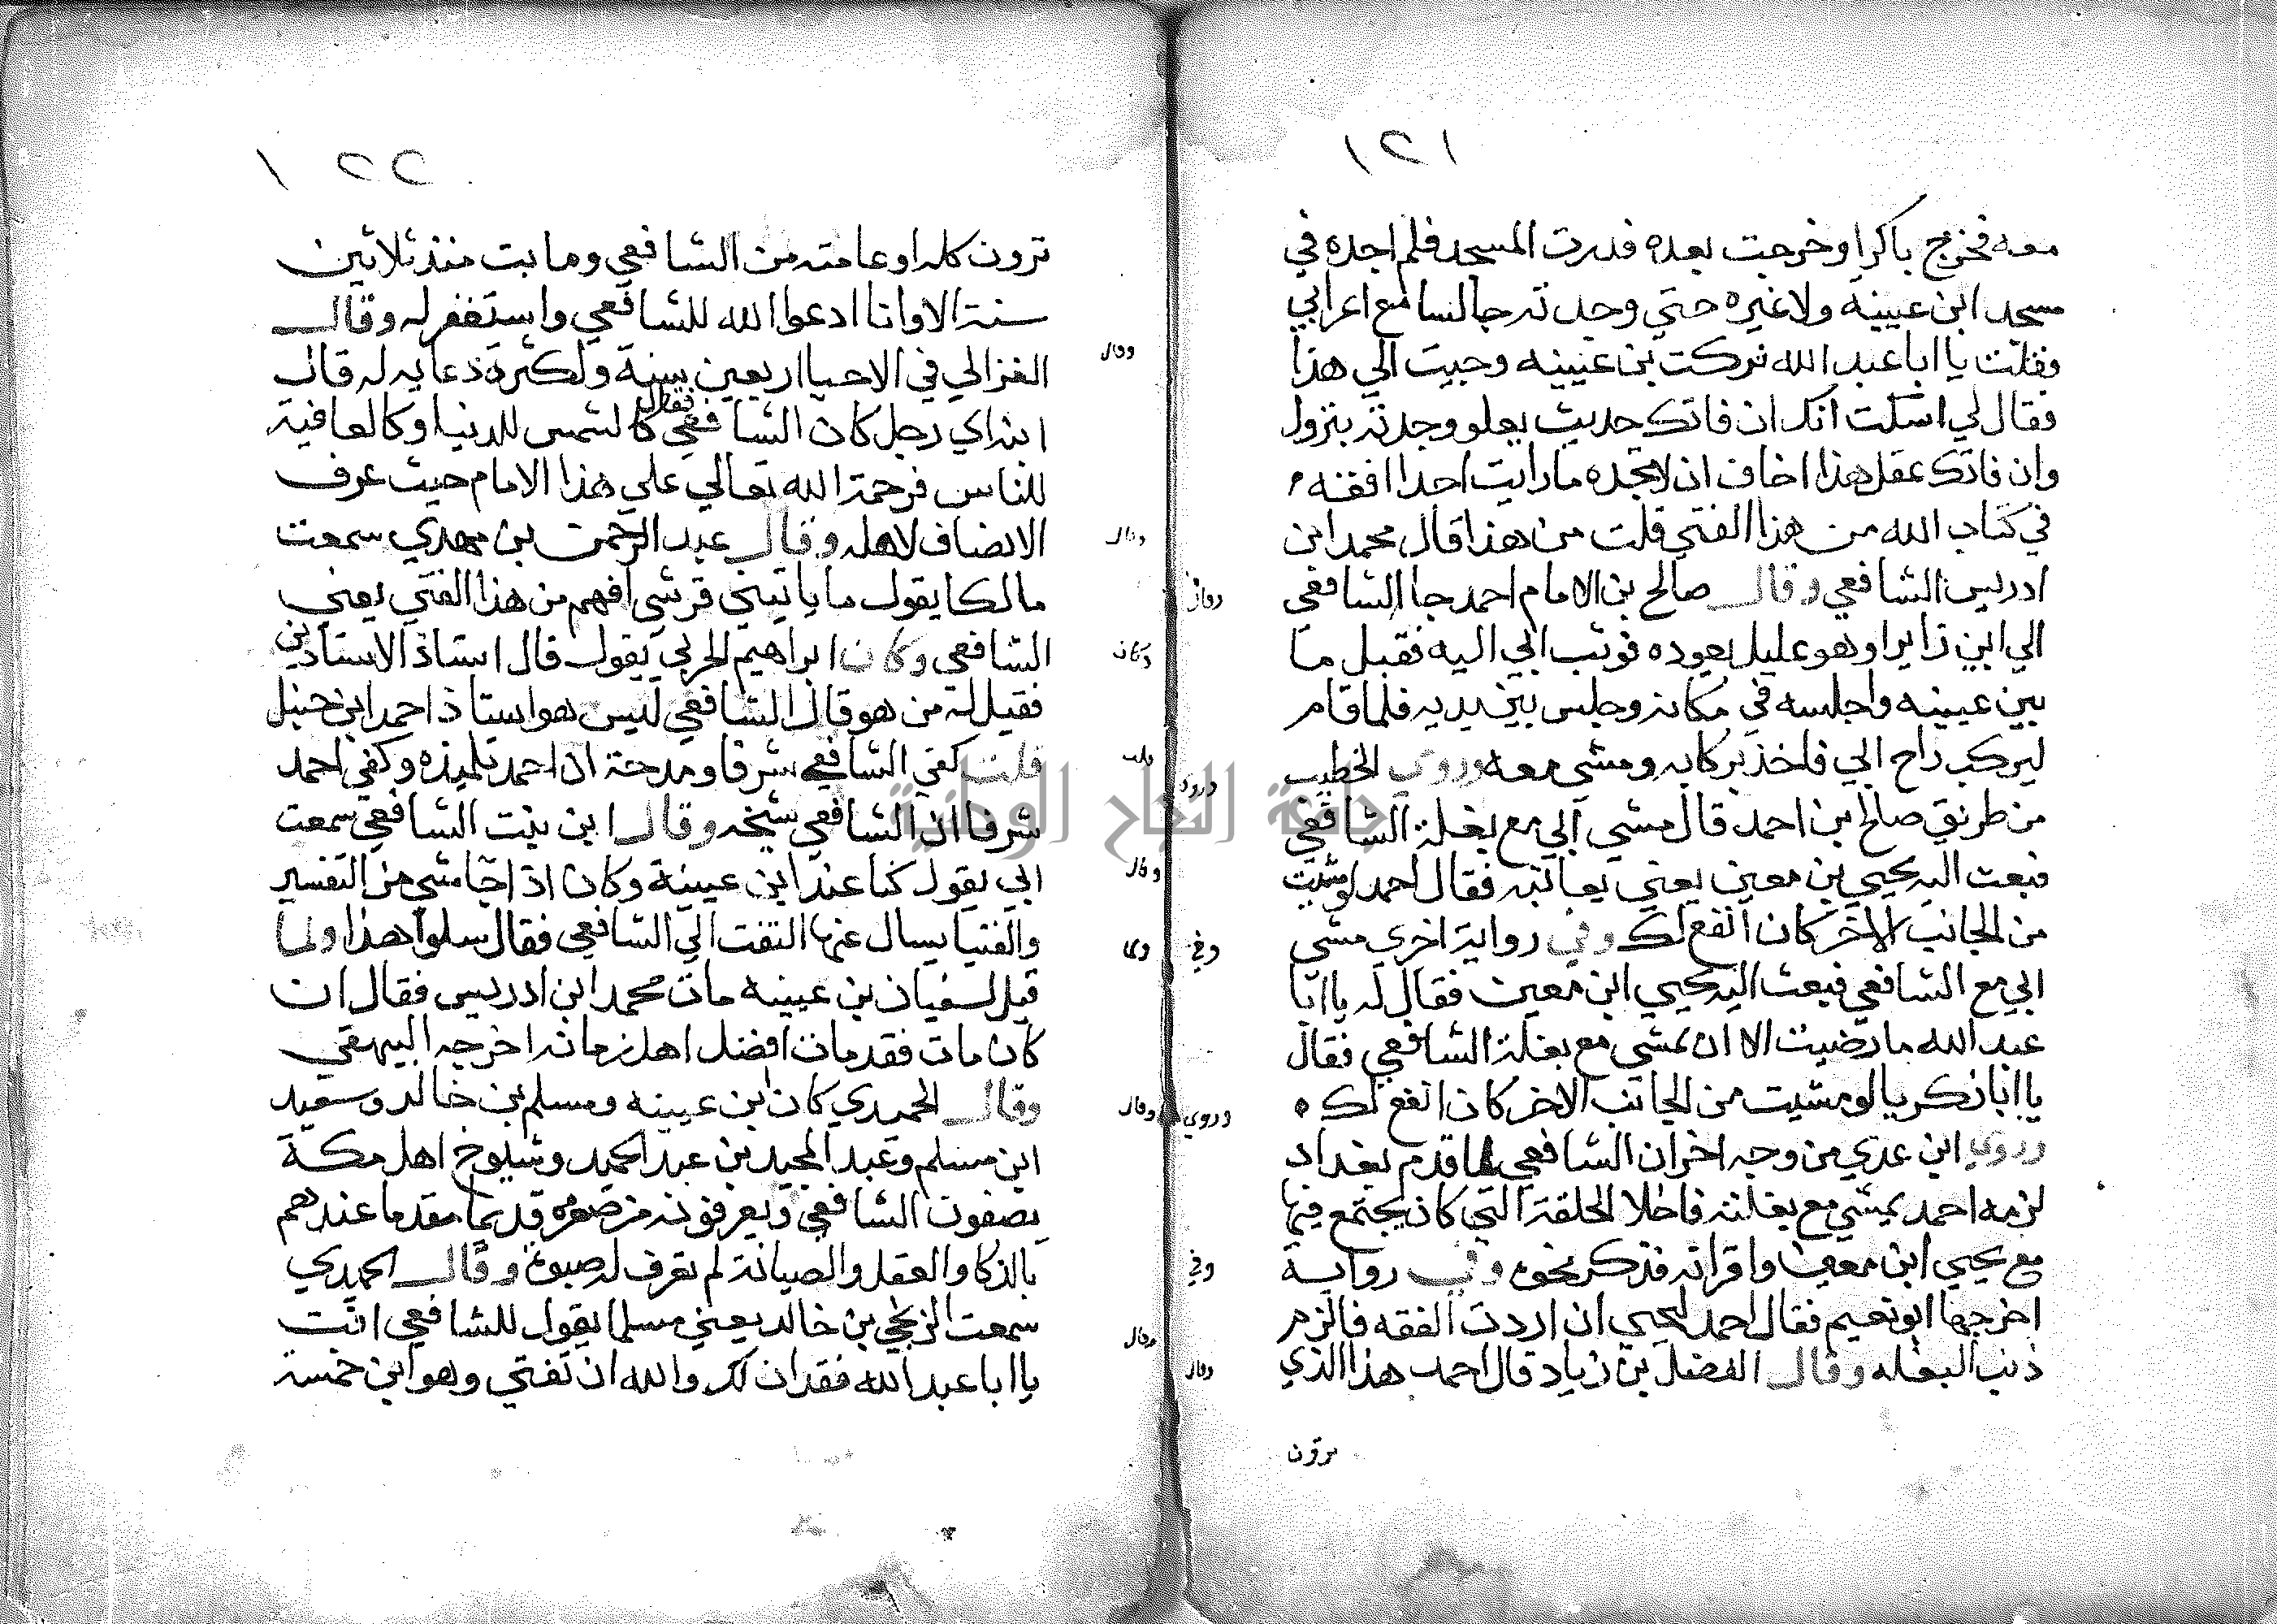 ١٢١
معه فخرج باكرا وخرجت بعده فدرت المسجد فلم اجده في
مسجد ابن عيينة ولا غيره حتي وجدته جالسا مع اعرابي
فقلت يا ابا عبد الله تركت بن عيينه وجيت الي هذا
فقال لي اسكت انك ان فاتك حديث بعلو وجدته بنزول
وان فاتك عقل هذا اخاف ان لا تجده ما رايت احدا افقه
في كتاب الله من هذا الفتي قلت من هذا قال محمد ابن
ادريس الشافعي وقال صالح بن الامام احمد جا الشافعي
الي ابي زايرا وهو عليل يعوده فوثب ابي اليه فقبل ما
بين عينيه واجلسه في مكانه وجلس بين يديه فلما قام
ليركب راح ابي فاخذ بركابه ومشي معه وروي الخطيب
من طريق صالح بن احمد قال مشي ابي مع بغلة الشافعي
فبعث اليه يحيي بن معين يعني يعاتبه فقال احمد لو مشيت
من الجانب الاخر كان انفع لك وفي رواية اخري مشي
ابي مع الشافعي فبعث اليه يحيي ابن معين فقال له يا ابا
عبد الله ما رضيت الا ان تمشي مع بغلة الشافعي فقال
يا ابا زكريا لو مشيت من الجانب الاخر كان انفع لك ه
وروي ابن عدي من وجه اخر ان الشافعي لما قدم بغداد
لزمه احمد يمشي مع بغلته فاخلا الحلقة التي كان يجتمع فيها
مع يحيي ابن معين واقرانه فذكر نحوه وفي رواية
اخرجها ابو نعيم فقال احمد ليحيي ان اردت الفقه فالزم
ذنب البغله وقال الفضل بن زياد قال احمد هذا الذي
ترون
وقال
وروي
وفي
وروي
وفي
وقال
١٢٢
ترون كله او عامته من الشافعي وما بت منذ ثلاثين
سنة الا وانا ادعوا الله للشافعي واستغفر له وقال
الغزالي في الاحيا اربعين سنة ولكثرة دعايه له قال
ابنه اي رجل كان الشافعي فقال كالشمس للدنيا وكالعافية
للناس فرحمة الله تعالي علي هذا الامام حيث عرف
الانصاف لاهله وقال عبد الرحمن بن مهدي سمعت
مالكا يقول ما ياتيني قرشي افهم من هذا الفتي يعني
الشافعي وكان ابراهيم الحربي يقول قال استاذ الاستاذين
فقيل له من هو قال الشافعي ليس هو استاذ احمد ابن حنبل
قلت كفي الشافعي شرفا ومدحة ان احمد تلميذه وكفي احمد
شرفا ان الشافعي شيخه وقال ابن بنت الشافعي سمعت
ابي يقول كنا عند ابن عيينة وكان اذا جا شي من التفسير
والفتيا يسال عنها التفت الي الشافعي فقال سلوا هذا ولما
قيل لسفيان بن عيينه مات محمد ابن ادريس فقال ان
كان مات فقد مات افضل اهل زمانه اخرجه البيهقي
وقال الحميدي كان ابن عيينه ومسلم بن خالد وسعيد
ابن مسلم وعبد المجيد بن عبد الحميد وشيوخ اهل مكة
يصفون الشافعي ويعرفونه من صغره قديما مقدما عندهم
بالذكا والعقل والصيانة لم تعرف له صبوة وقال الحميدي
سمعت الزنجي بن خالد يعني مسلما يقول للشافعي افت
يا ابا عبد الله فقد ان لك والله ان تفتي وهو ابن خمسة
وقال
وقال
وكان
قلت
وقال
ولما
وقال
وقال
جامعة النجاح الوطنية